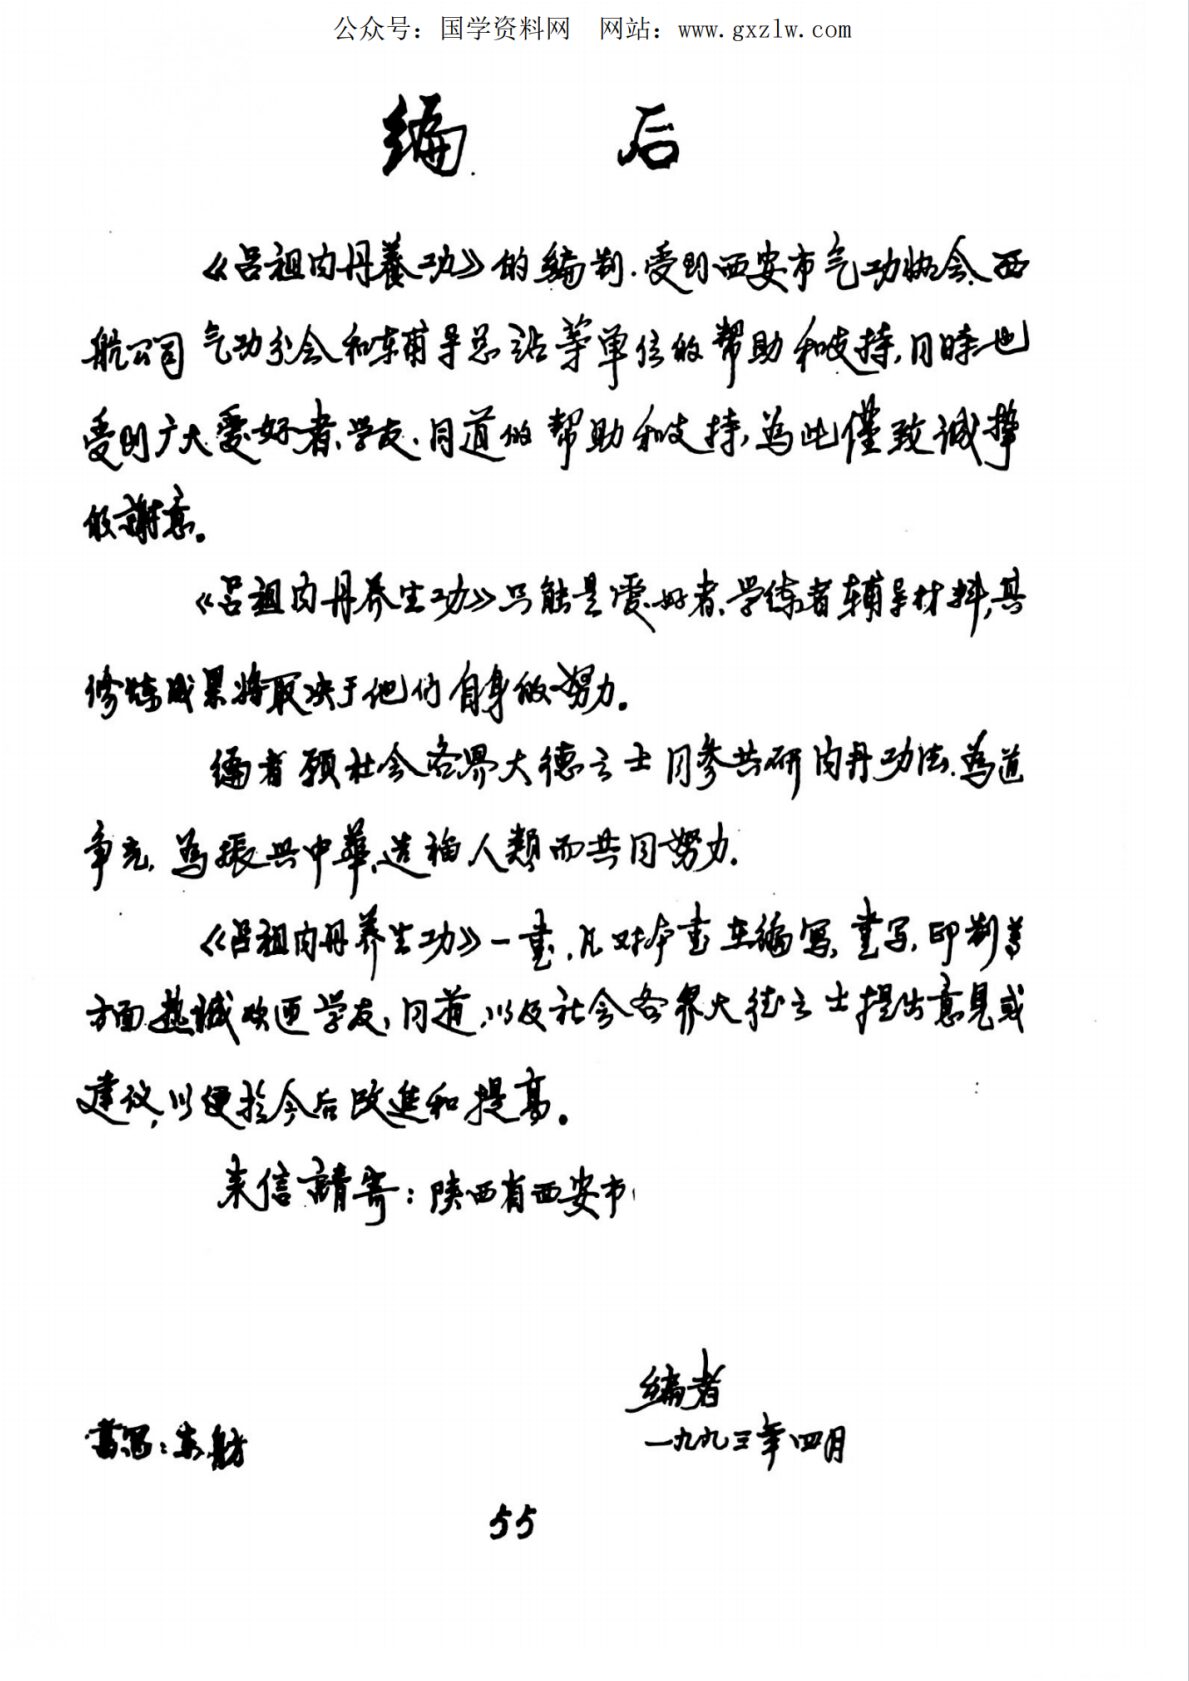 公众号：国学资料网　网站：www.gxzlw.com
编　后
《吕祖内丹養功》的编制.受到西安市气功协会、西
航公司气功分会和东辅导总站等单位的帮助和支持,同時也
受到广大爱好者、学友、同道的帮助和支持,為此僅致诚挚
的謝意。
《吕祖内丹养生功》只能是爱好者、学练者辅导材料,其
修炼成果将取决于他们自身的努力。
编者願社会各界大德之士同参共研内丹功法.為道
争光,為振兴中華,造福人類而共同努力.
《吕祖内丹养生功》一書,凡对本書在编写,書写,印制等
方面,热诚欢迎学友,同道,以及社会各界大德之士提出意見或
建议,以便於今后改進和提高。
来信請寄:陕西省西安市
编者
一九九三年四月
書写:东舫
55